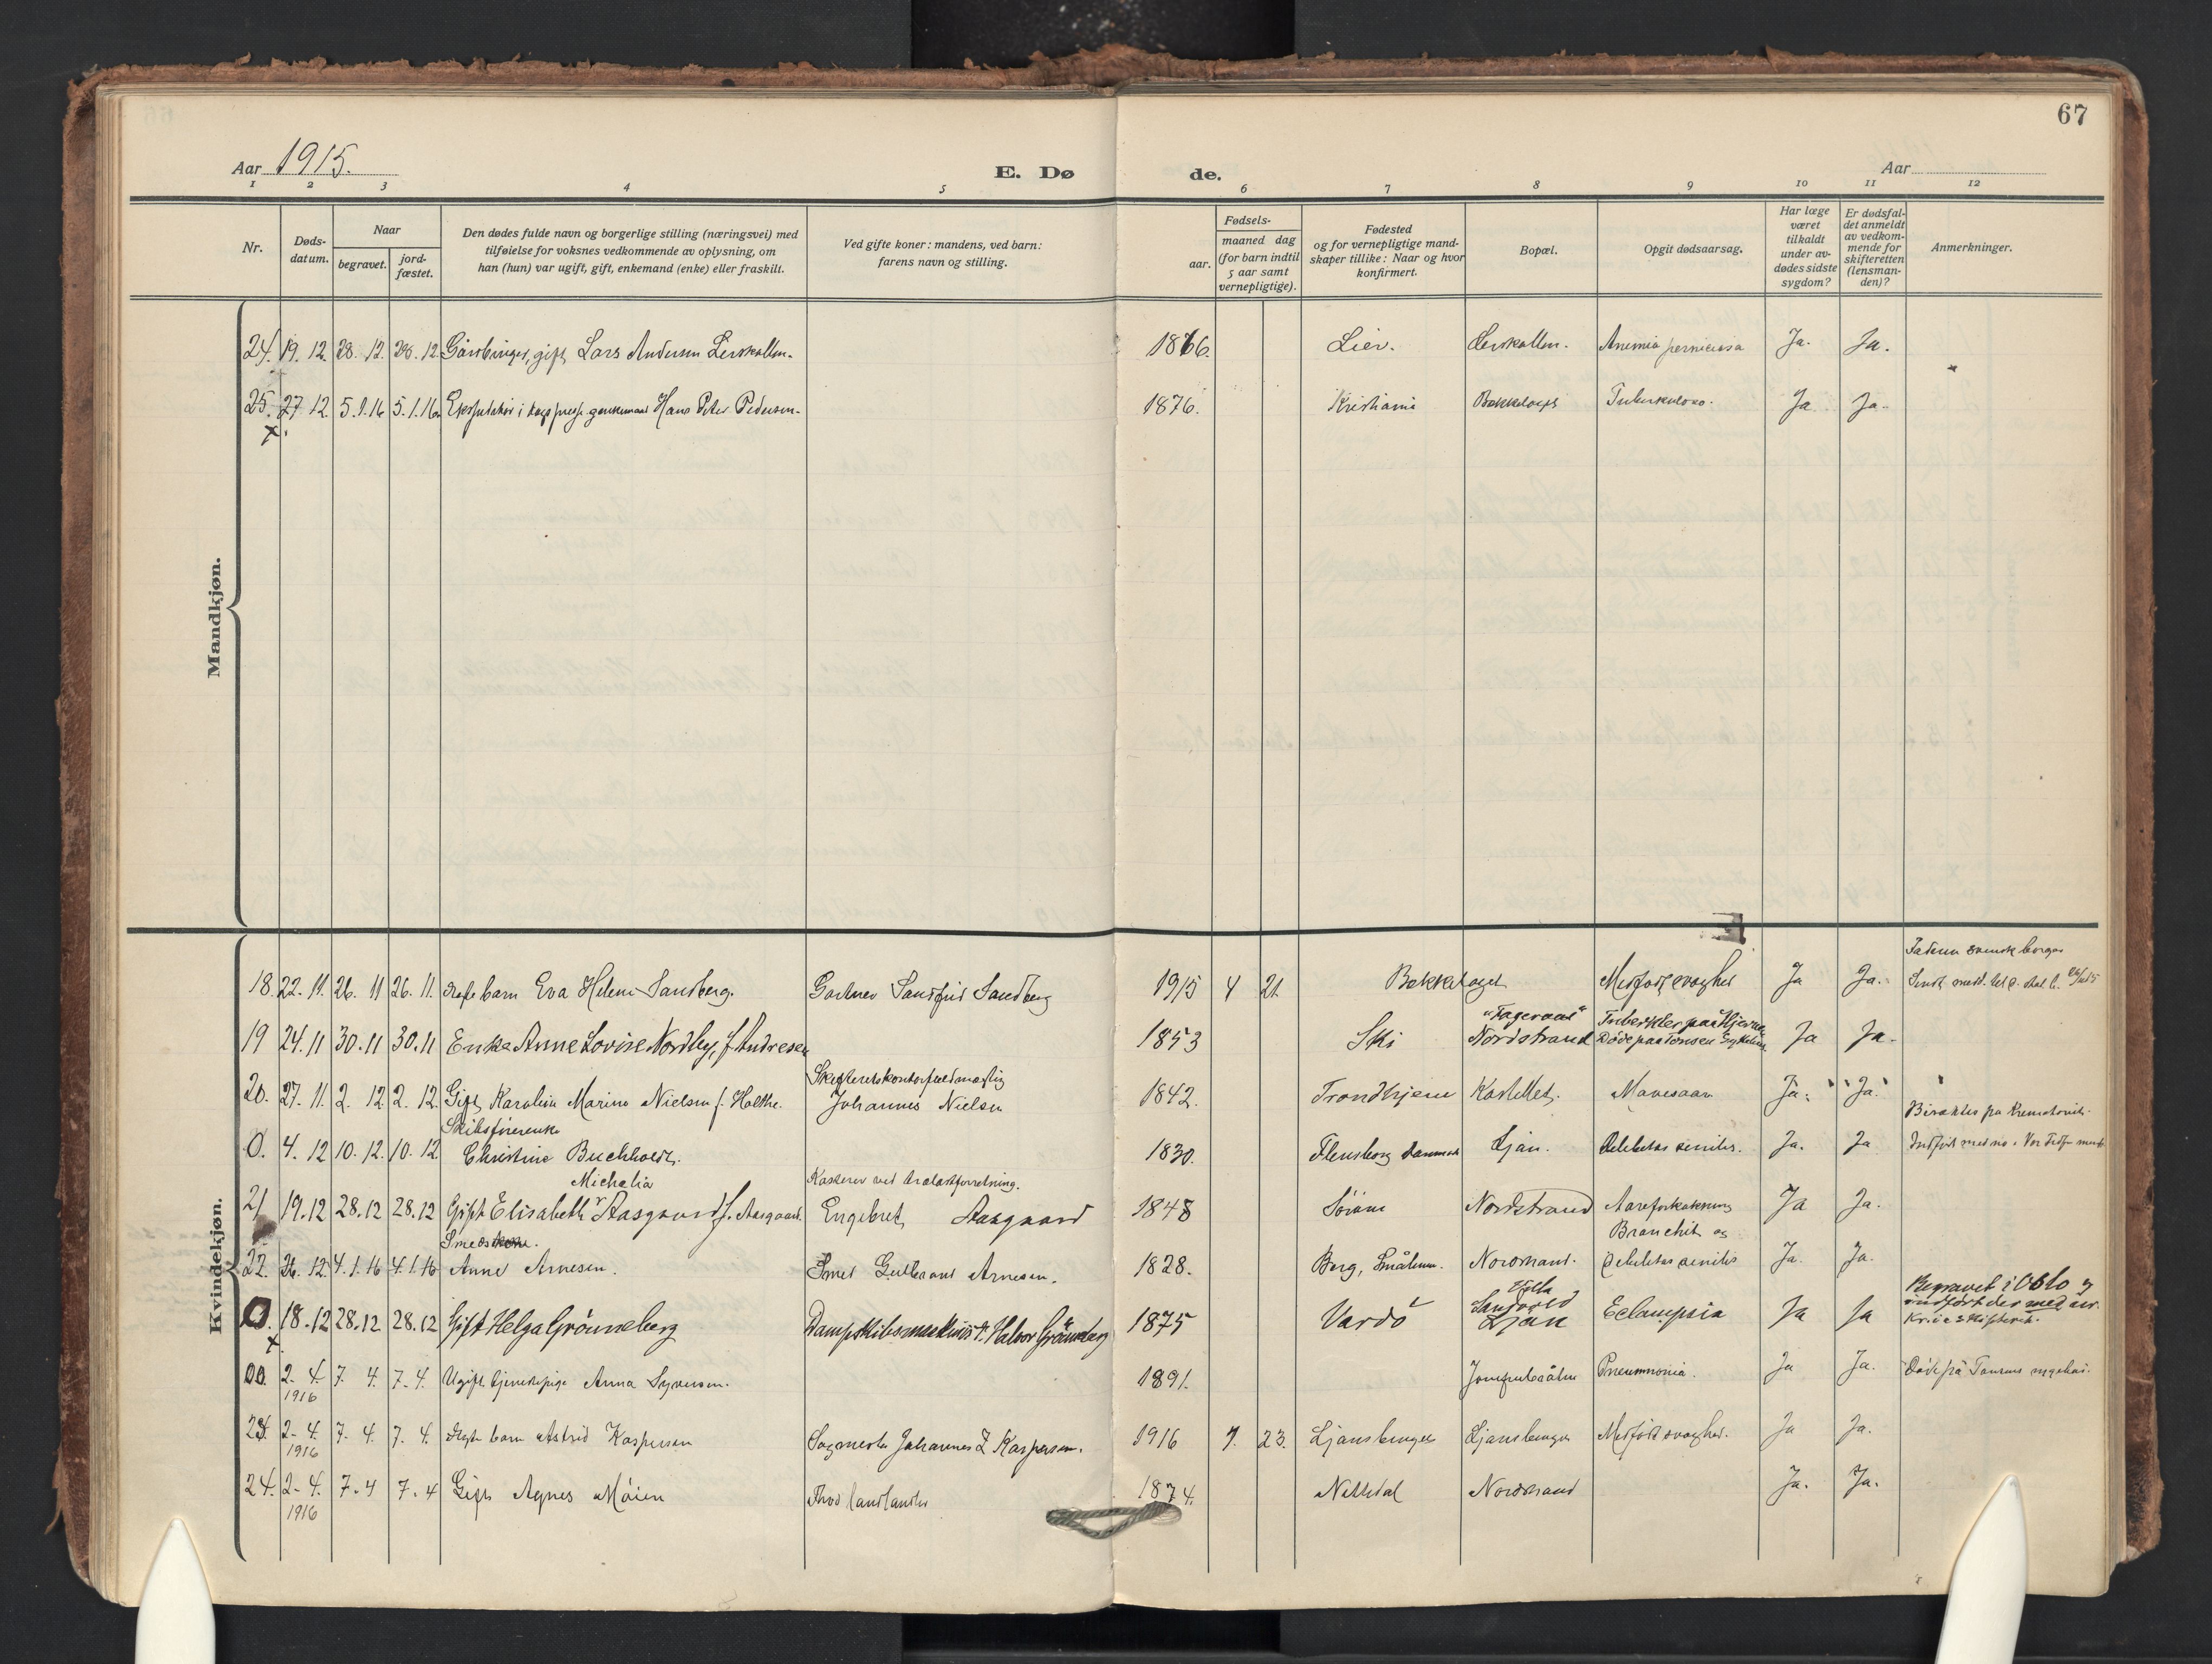 67
Aar 1915.
E. Døde.
Aar
1 2 3 4 5 6 7 8 9 10 11 12
Nr.
Døds-
datum.
Naar
begravet.
jord-
fæstet.
Den dødes fulde navn og borgerlige stilling (næringsvei) med
tilføielse for voksnes vedkommende av oplysning, om
han (hun) var ugift, gift, enkemand (enke) eller fraskilt.
Ved gifte koner: mandens, ved barn:
farens navn og stilling.
Fødsels-
aar.
maaned dag
(for barn indtil
5 aar samt
vernepligtige).
Fødested
og for vernepligtige mand-
skaper tillike: Naar og hvor
konfirmert.
Bopæl.
Opgit dødsaarsag.
Har læge
været
tilkaldt
under av-
dødes sidste
sygdom?
Er dødsfal-
det anmeldt
av vedkom-
mende for
skifteretten
(lensman-
den)?
Anmerkninger.
Mandkjøn.
24. 19. 12. 28. 12. 28. 12. gift Lars Andersen Lerskallen. 1866. Lier. Lerskallen. Anemia perniciosa Ja. Ja.
25. 27. 12. 5.1.16 5.1.16. Hans Peter Pedersen. 1876. Kristiania Bækkelaget Tuberkulose. Ja Ja.
x
Kvindekjøn.
Faderen svensk borger
18. 22. 11. 26. 11 26. 11. barn Eva Helene Sandberg. Gartner Sandfrid Sandberg 1915 4 21. Bækkelaget Medfødt svaghet Ja Ja.
"Fagerval"
19 24.11 30.11 30.11 Enke Anne Lovise Nordby, f. Andresen 1853 Ski Nordstrand Tuberkler paa Hjernen Ja Ja.
Døde paa Tonsen Sykehus
20. 27. 11. 2. 12 2. 12. Gift Karolin Marine Nielsen f. Holthe. Johannes Nielsen 1842. Trondhjem Kastellet. Mavesaar Ja. Ja.
Skibsførerenke
0. 4. 12 10. 12. 10. 12 Christine Buchholdt. 1830. Flensborg Danmark Ljan. Debilitas senilis. Ja. Ja
Michalia
Kasserer ved
21 19.12 28.12 28.12 Gift Elisabeth Aasgaard f. Aasgaard. Engebret Aasgaard 1848 Sörum Nordstrand Aareforkalkning Ja Ja.
Smedskone.
Bronchit og
22. 26. 12. 4.1.16 4.1.16 Anne Arnesen. Smed Gulbrand Arnesen. 1828. Berg, Smålenene. Nordstrand. debilitas senilis Ja. Ja.
0. 18.12 28.12 28.12 Gift Helga Grönneberg Dampskibsmaskinist. Halvor Grönneberg 1875 Vardö Ljan Eclampsia Ja Ja
Begravet i Oslo
x
00. 2. 4. 7. 4. 7. 4. Ugift tjenestepige Anna Syversen. 1891. Pneumonia. Ja Ja. Döde på
1916
23. 2. 4. 7. 4. 7. 4. barn Astrid Kaspersen Sagmester Johannes Z Kaspersen. 1916 7. 23. Ljansbruget Ljansbruget Medfödt svaghet. Ja Ja.
1916
24. 2. 4. 7. 4 7. 4 Gift Agnes Möien 1874. Nittedal Nordstrand Ja. Ja.
1916